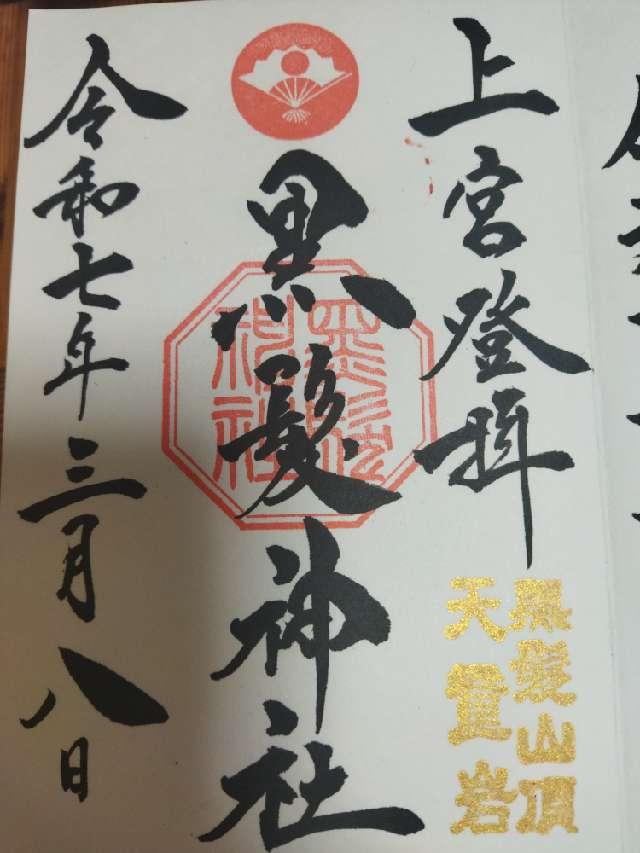 上宮登拝
黒髪山頂
天童岩
黒髪神社
黒髪神社
令和七年三月八日